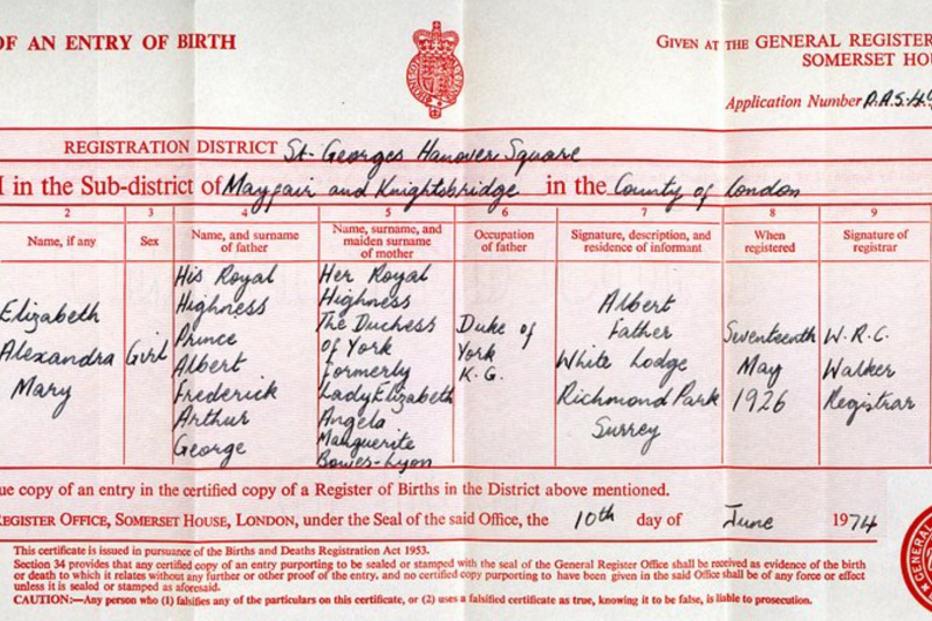 OF AN ENTRY OF BIRTH
GIVEN AT THE GENERAL REGISTER
SOMERSET HOU
Application Number P.A.S.
REGISTRATION DISTRICT St. Georges Hanover Square
in the Sub-district of Mayfair and Knightsbridge in the County of London
2 3 4 5 6 7 8 9
Name, if any
Sex
Name, and surname
of father
Name, surname, and
maiden surname
of mother
Occupation
of father
Signature, description, and
residence of informant
When
registered
Signature of
registrar
Elizabeth
Alexandra
Mary
Girl
His Royal
Highness
Prince
Albert
Frederick
Arthur
George
Her Royal
Highness
The Duchess
of York
formerly
Lady Elizabeth
Angela
Marguerite
Bowes-Lyon
Duke of
York
K.G.
Albert
Father
White Lodge
Richmond Park
Surrey
Seventeenth
May
1926
W.R.C.
Walker
Registrar
ue copy of an entry in the certified copy of a Register of Births in the District above mentioned.
REGISTER OFFICE, SOMERSET HOUSE, LONDON, under the Seal of the said Office, the 10th day of June 1974
This certificate is issued in pursuance of the Births and Deaths Registration Act 1953.
Section 34 provides that any certified copy of an entry purporting to be sealed or stamped with the seal of the General Register Office shall be received as evidence of the birth
or death to which it relates without any further or other proof of the entry, and no certified copy purporting to have been given in the said Office shall be of any force or effect
unless it is sealed or stamped as aforesaid.
CAUTION:—Any person who (1) falsifies any of the particulars on this certificate, or (2) uses a falsified certificate as true, knowing it to be false, is liable to prosecution.